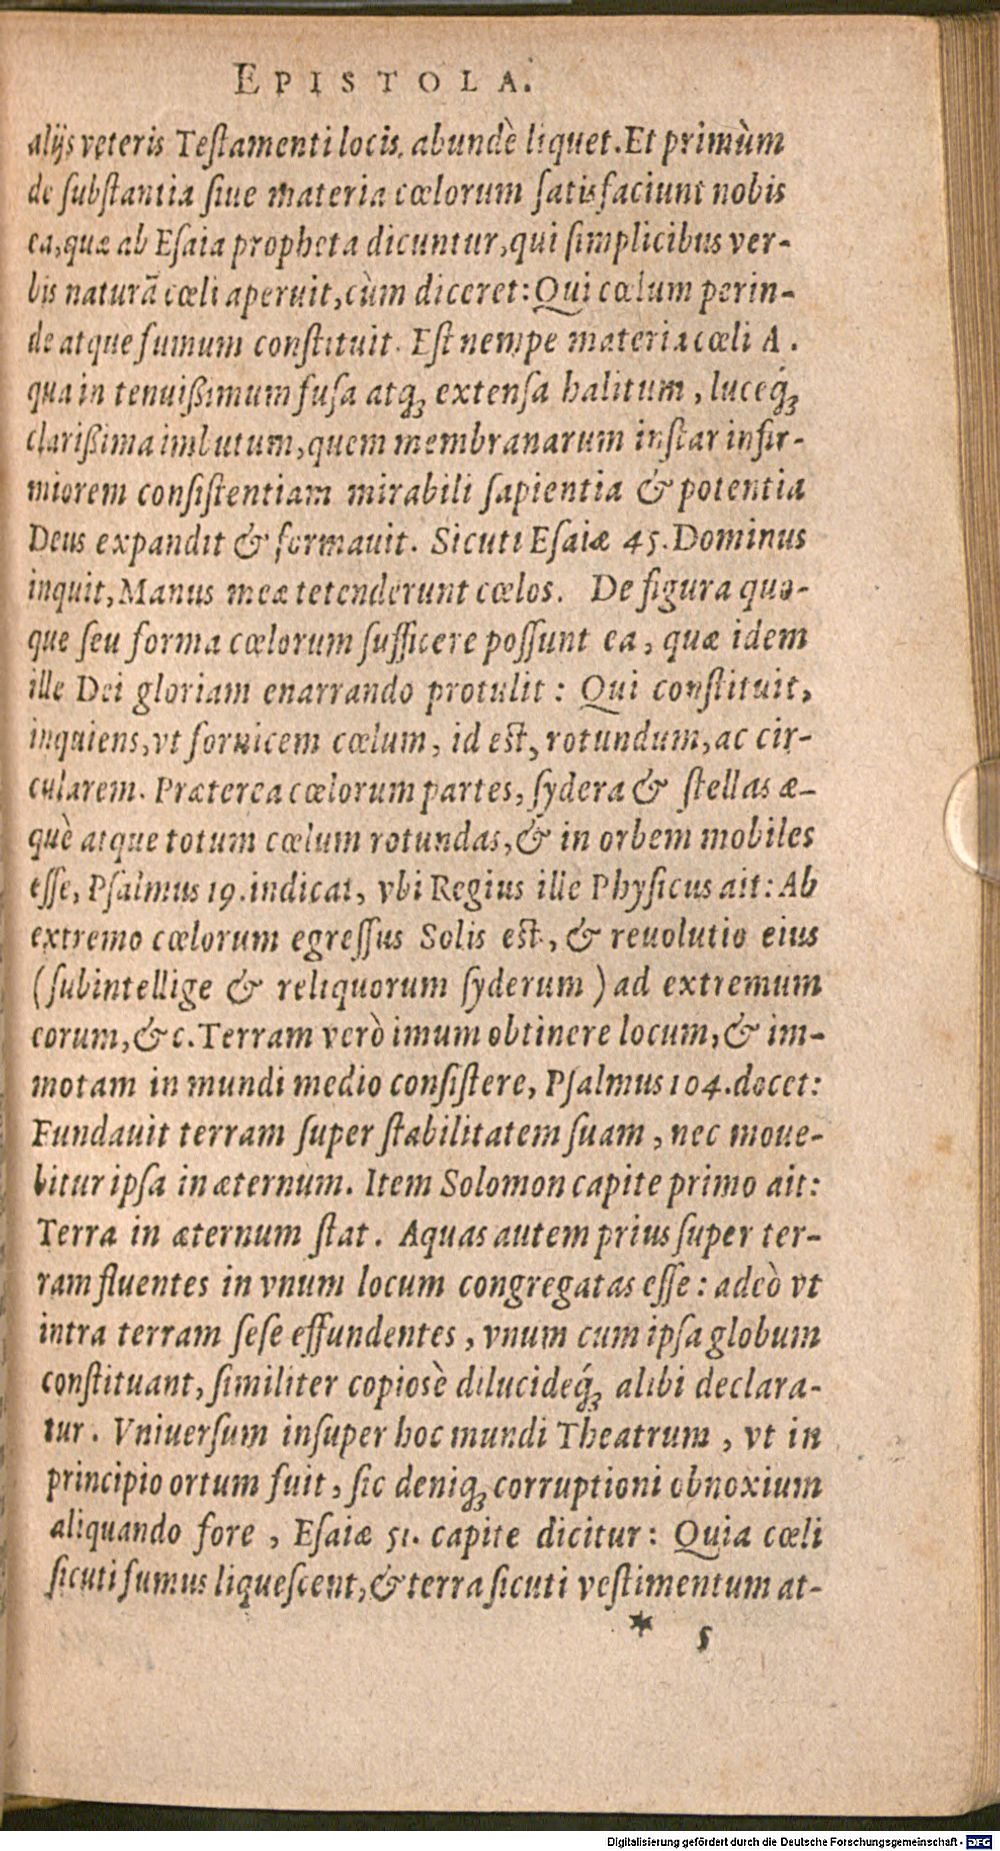 EPISTOLA.
alijs veteris Testamenti locis, abundè liquet. Et primùm
de substantia siue materia cœlorum satisfaciunt nobis
ea, quæ ab Esaia propheta dicuntur, qui simplicibus ver-
bis naturā cœli aperuit, cùm diceret: Qui cœlum perin-
de atque fumum constituit. Est nempe materia cœli A.
qua in tenuißimum fusa atq; extensa halitum, luceq́;
clarißima imbutum, quem membranarum instar infir-
miorem consistentiam mirabili sapientia & potentia
Deus expandit & formauit. Sicuti Esaiæ 45. Dominus
inquit, Manus meæ tetenderunt cœlos. De figura quo-
que seu forma cœlorum sufficere possunt ea, quæ idem
ille Dei gloriam enarrando protulit: Qui constituit,
inquiens, vt fornicem cœlum, id est, rotundum, ac cir-
cularem. Præterea cœlorum partes, sydera & stellas æ-
què atque totum cœlum rotundas, & in orbem mobiles
esse, Psalmus 19. indicat, vbi Regius ille Physicus ait: Ab
extremo cœlorum egressus Solis est, & reuolutio eius
(subintellige & reliquorum syderum) ad extremum
eorum, & c. Terram verò imum obtinere locum, & im-
motam in mundi medio consistere, Psalmus 104. docet:
Fundauit terram super stabilitatem suam, nec moue-
bitur ipsa in æternum. Item Solomon capite primo ait:
Terra in æternum stat. Aquas autem prius super ter-
ram fluentes in vnum locum congregatas esse: adeò vt
intra terram sese effundentes, vnum cum ipsa globum
constituant, similiter copiosè dilucideq́; alibi declara-
tur. Vniuersum insuper hoc mundi Theatrum, vt in
principio ortum fuit, sic deniq; corruptioni obnoxium
aliquando fore, Esaiæ 51. capite dicitur: Quia cœli
sicuti fumus liquescent, & terra sicuti vestimentum at-
* 5
Digitalisierung gefördert durch die Deutsche Forschungsgemeinschaft - DFG